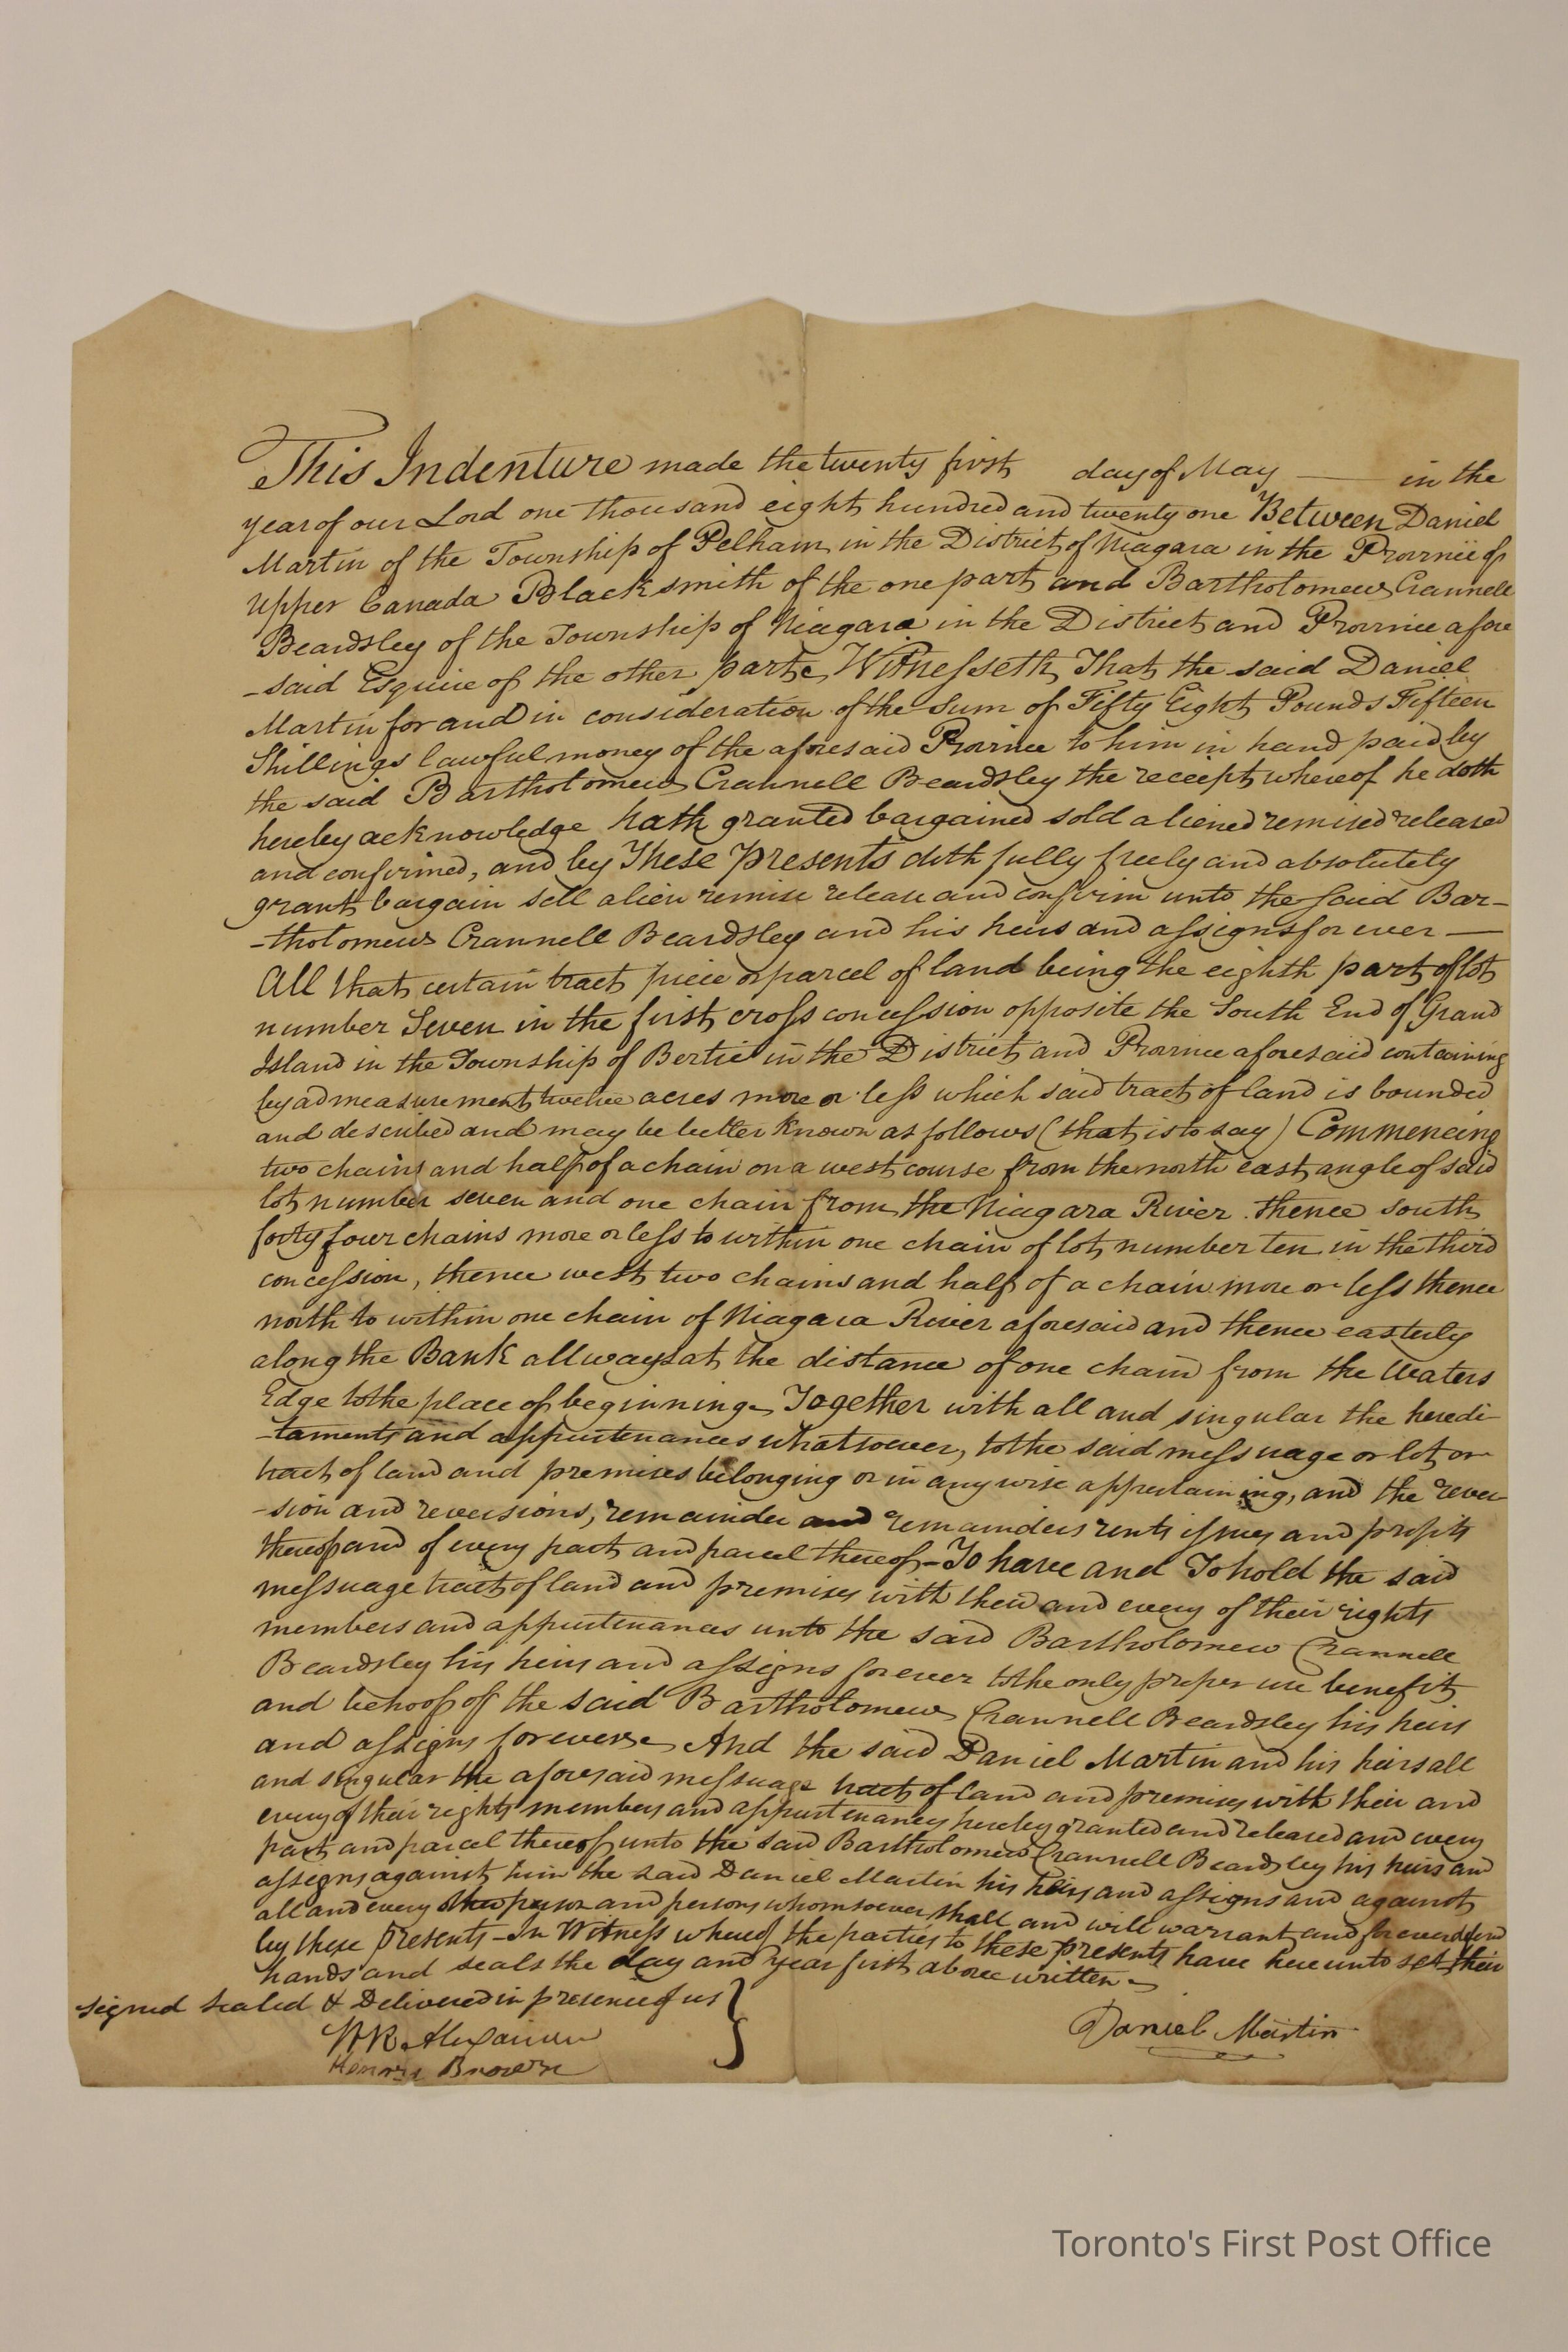 This Indenture made the twenty first day of May —— in the
year of our Lord one thousand eight hundred and twenty one Between Daniel
Martin of the Township of Pelham in the District of Niagara in the Province of
Upper Canada Blacksmith of the one part and Bartholomew Crannell
Beardsley of the Township of Niagara in the District and Province afore
-said Esquire of the other part, Witnesseth, That the said Daniel
Martin for and in consideration of the Sum of Fifty Eight Pounds Fifteen
Shillings lawful money of the aforesaid Province to him in hand paid by
the said Bartholomew Crannell Beardsley the receipt whereof he doth
hereby acknowledge hath granted bargained sold aliened remised released
and confirmed, and by These Presents doth fully freely and absolutely
grant bargain sell alien remise release and confirm unto the said Bar-
-tholomew Crannell Beardsley and his heirs and assigns for ever —
All that certain tract piece or parcel of land being the eighth part of lot
number Seven in the first cross concession opposite the South End of Grand
Island in the Township of Bertie in the District and Province aforesaid containing
by admeasurement twelve acres more or less which said tract of land is bounded
and described and may be better known as follows (that is to say) Commencing
two chains and half of a chain on a west course from the north east angle of said
lot number seven and one chain from the Niagara River. thence south
forty four chains more or less to within one chain of lot number ten in the third
concession, thence west two chains and half of a chain more or less thence
north to within one chain of Niagara River aforesaid and thence easterly
along the Bank allways at the distance of one chain from the Waters
Edge to the place of beginning. Together with all and singular the heredi-
-taments and appurtenances whatsoever, to the said messuage or lot or
tract of land and premises belonging or in any wise appertaining, and the rever
-sion and reversions, remainder and remainders rents issues and profits
thereof and of every part and parcel thereof - To have and To hold the said
messuage tract of land and premises with their and every of their rights
members and appurtenances unto the said Bartholomew Crannell
Beardsley his heirs and assigns forever to the only proper use benefit
and behoof of the said Bartholomew Crannell Beardsley his heirs
and assigns forever And the said Daniel Martin and his heirs all
and singular the aforesaid messuage tract of land and premises with their and
every of their rights members and appurtenances hereby granted and released and every
part and parcel thereof unto the said Bartholomew Crannell Beardsley his heirs and
assigns against him the said Daniel Martin his heirs and assigns and against
all and every other person and persons whomsoever shall and will warrant and forever defend
by these Presents - In Witness whereof the parties to these presents have hereunto set their
hands and seals the day and year first above written -
Signed Sealed & Delivered in presence of us
Alexander
Henry Brown
Daniel Martin
Toronto's First Post Office